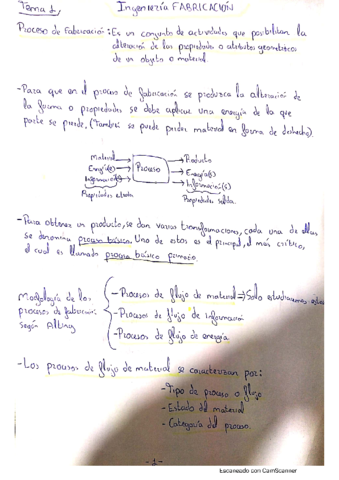 Tema 1
Ingeniería FABRICACIÓN
Proceso de Fabricación: Es un conjunto de actividades que posibilitan la
alteración de las propiedades o atributos geométricos
de un objeto o material.
-Para que en el proceso de fabricación se produzca la alteración de
la forma o propiedades se debe aplicar una energía de la que
parte se pierde. (También se puede perder material en forma de desecho).
Material
Energía(e)
Información(e)
Propiedades entrada
Proceso
Producto
Energía(s)
Información(s)
Propiedades salida
-Para obtener un producto, se dan varias transformaciones, cada una de ellas
se denomina proceso básico. Uno de estos es el principal, el más crítico,
el cual es llamado proceso básico primario.
Morfología de los
procesos de fabricación
según Alting
-Procesos de flujo de material => Solo estudiaremos estos
-Procesos de flujo de información
-Procesos de flujo de energía
-Los procesos de flujo de material se caracterizan por:
-Tipo de proceso o flujo
-Estado del material
-Categoría del proceso.
-1-
Escaneado con CamScanner